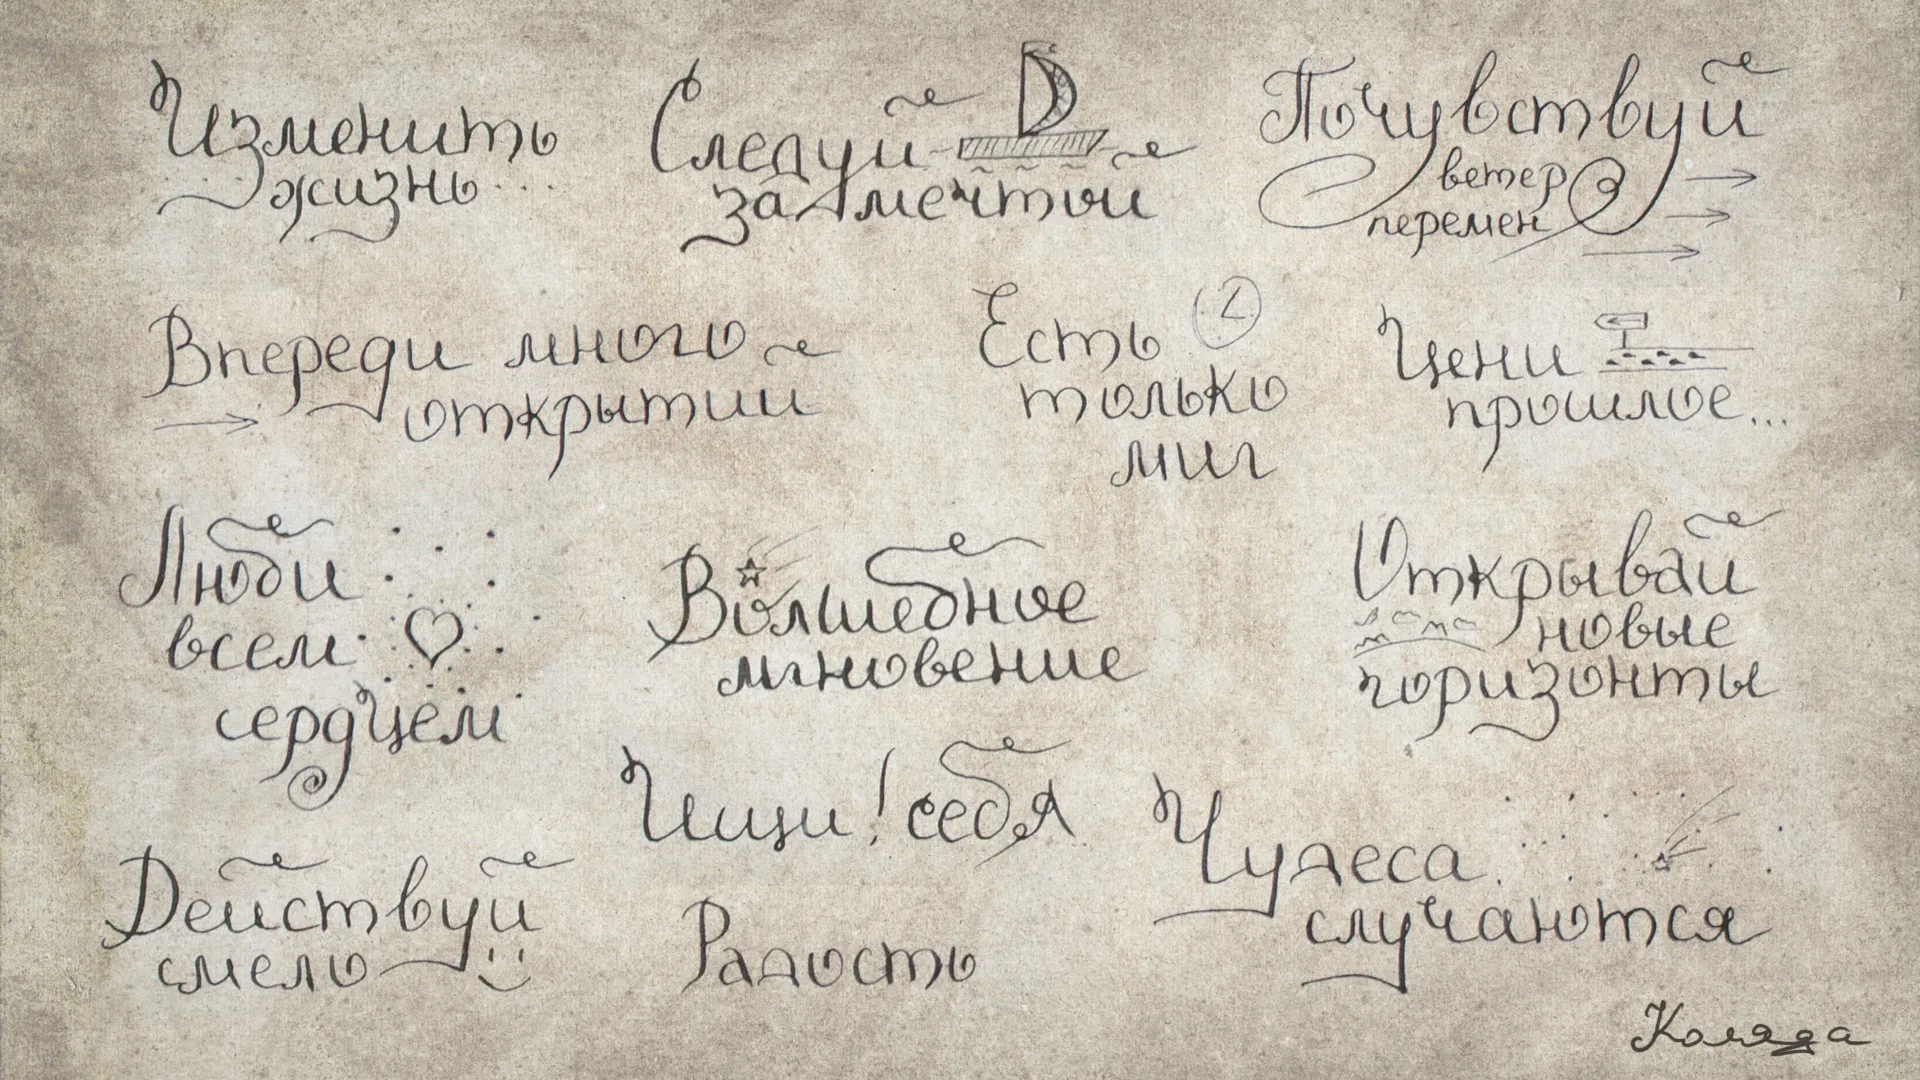 Изменить
жизнь...
Следуй
за мечтой
Почувствуй
ветер
перемен
Впереди много
открытий
Есть
только
миг
Цени
прошлое...
Люби
всем
сердцем
Волшебное
мгновение
Открывай
новые
горизонты
Ищи! себя
Чудеса
случаются
Действуй
смело
Радость
Коляда